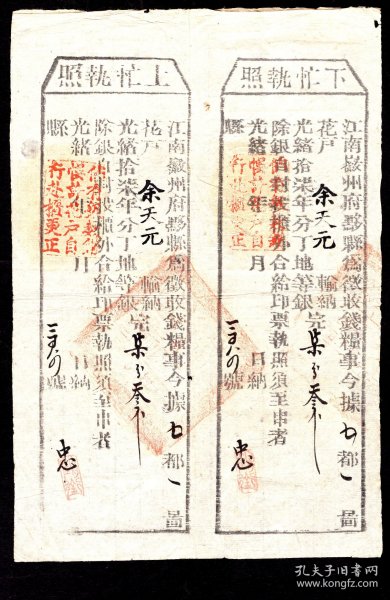 下忙執照
江南徽州府黟縣為徵收錢糧事今據七都一圖
花戶余天元輸納
光緒拾柒年分丁地等銀完柒分叁厘
除銀自封投櫃外合給印票執照須至串者
光緒 年 月 日納 號
縣
忠
上忙執照
江南徽州府黟縣為徵收錢糧事今據七都一圖
花戶余天元輸納
光緒拾柒年分丁地等銀完柒分叁厘
除銀自封投櫃外合給印票執照須至串者
光緒 年 月 日納 號
縣
忠
孔夫子旧书网
www.kongfz.com